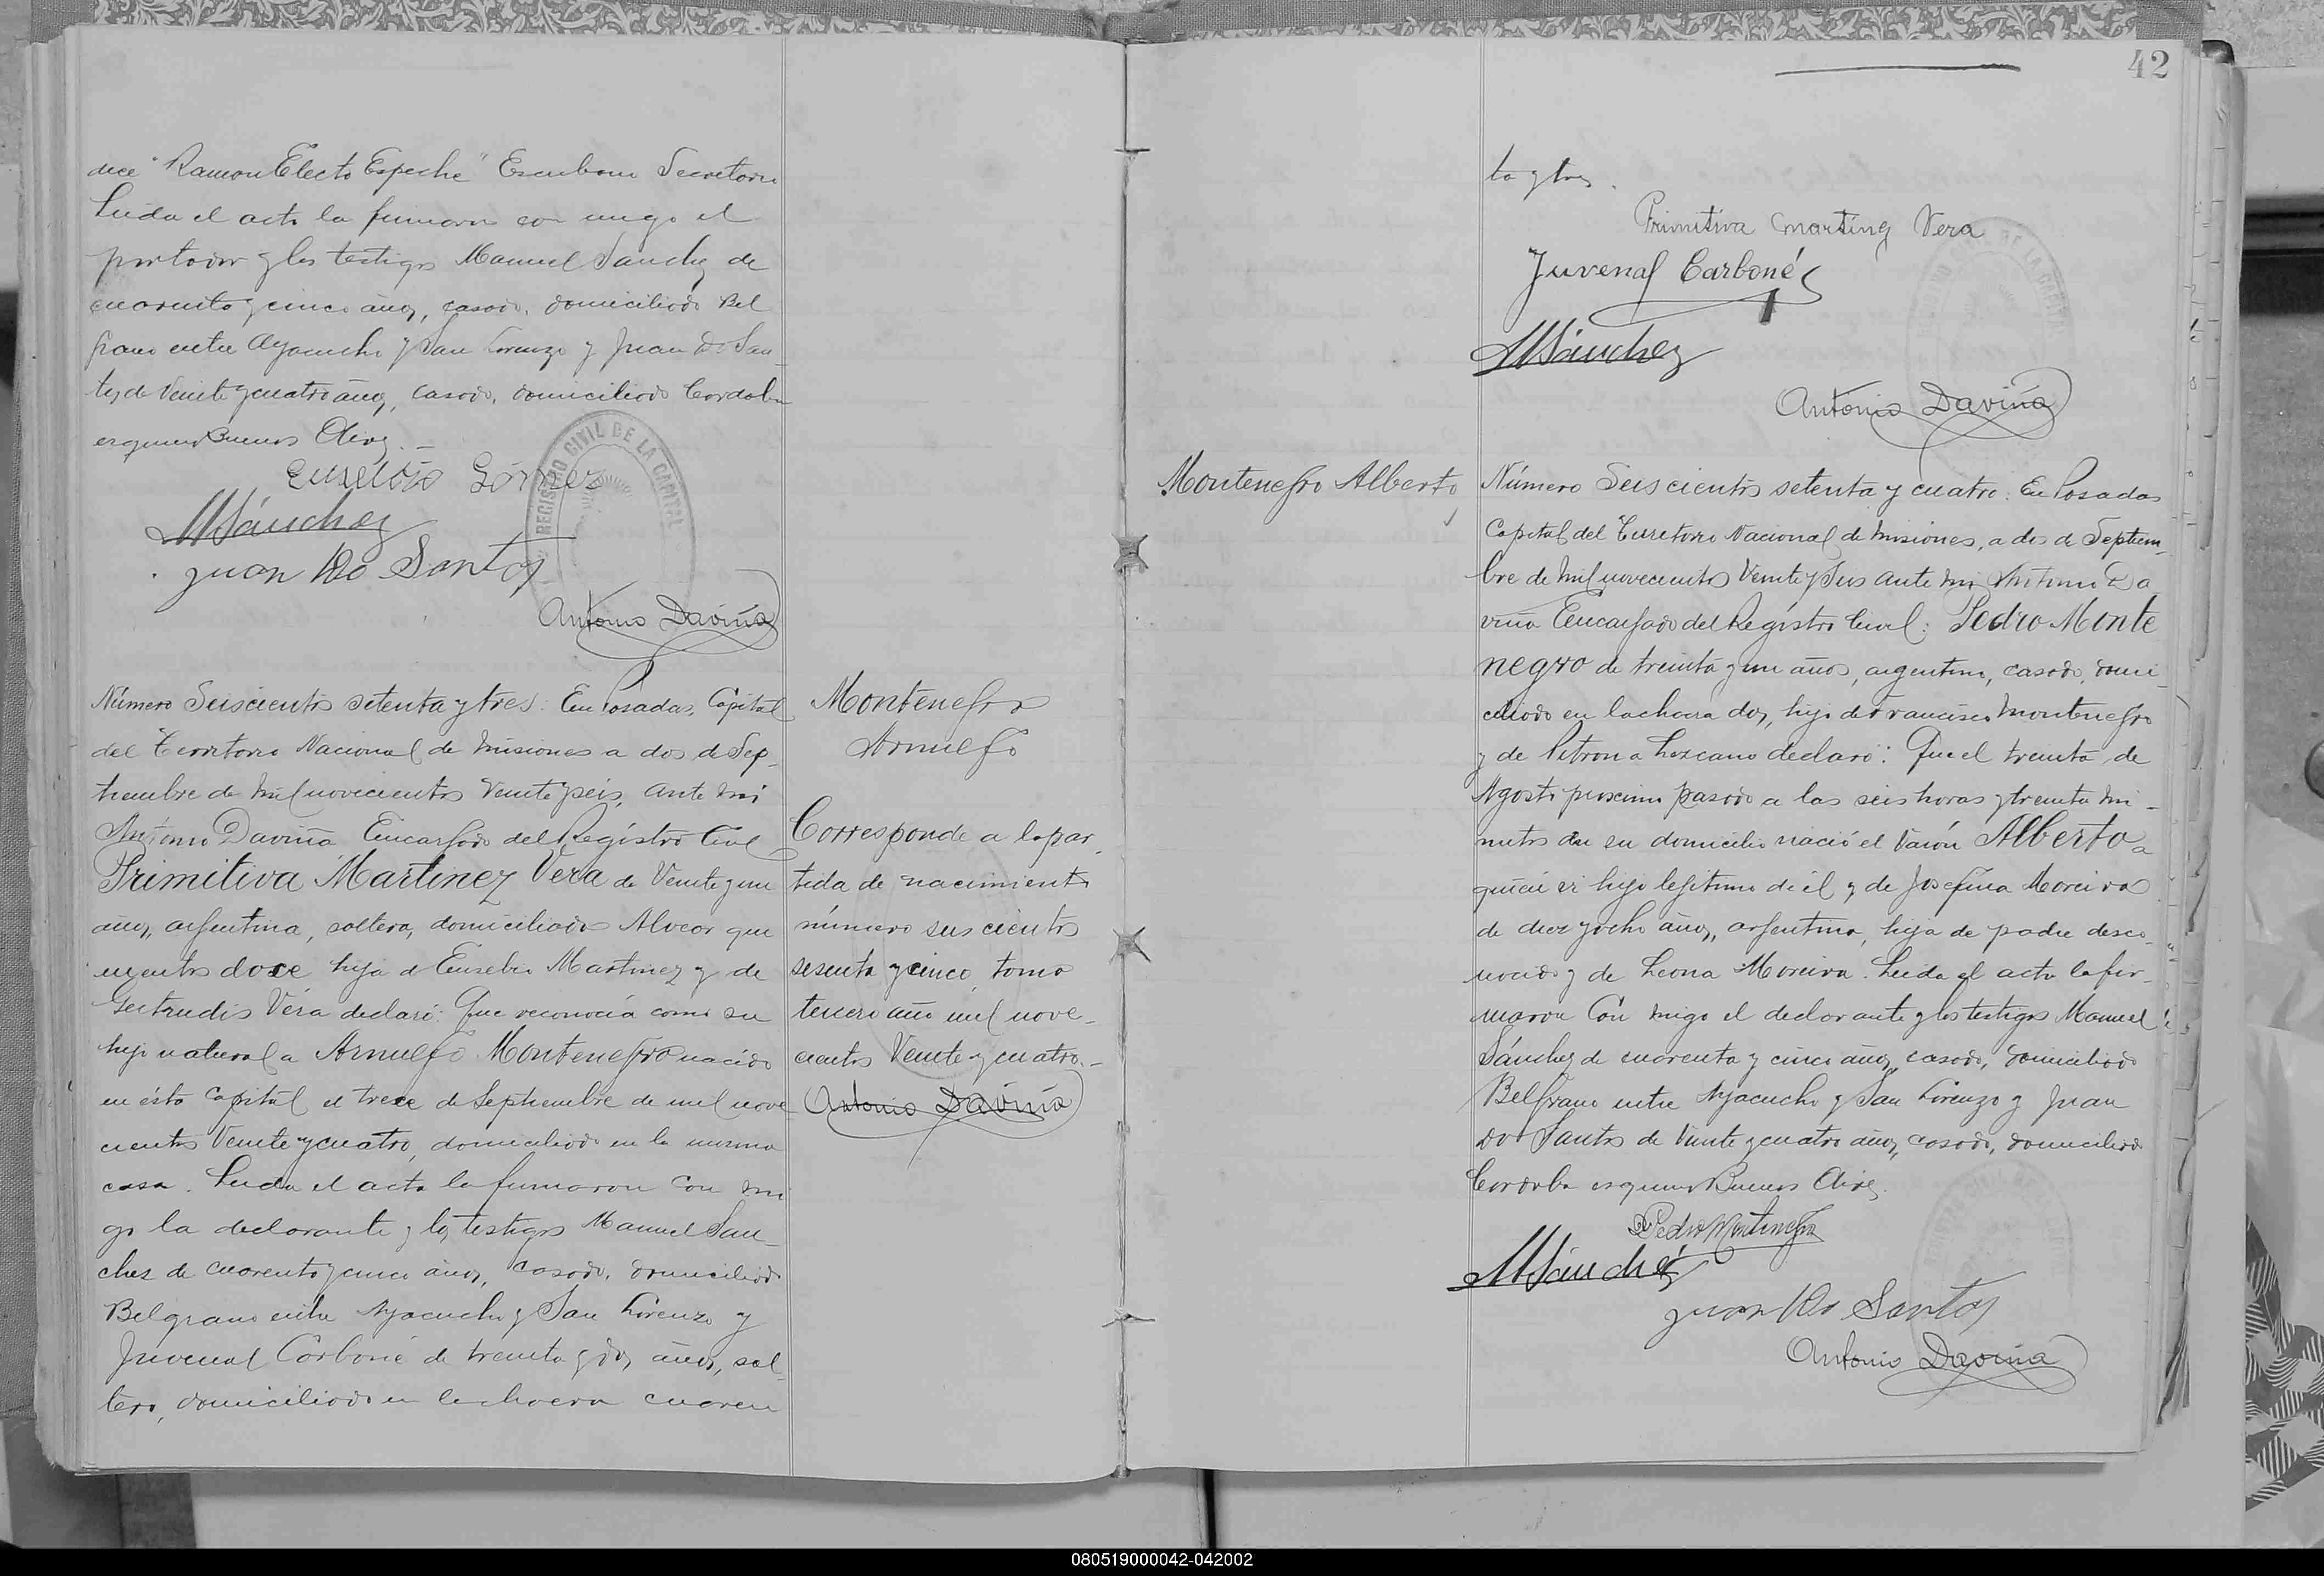 dice "Ramon Electo Espeche" Escribano Secretario
Leida el acta la firmaron con migo el
portador y los testigos Manuel Sanchez de
cuarenta y cinco años, casado, domiciliado Bel
grano entre Ayacucho y San Lorenzo y Juan Do San
tos de Veinte y cuatro años, casado, domiciliado Cordoba
esquina Buenos Aires. —
Eusebio Gómez
REGISTRO CIVIL DE LA CAPITAL
MSánchez
Juan Do Santos
Antonio Daviña
Número Seiscientos setenta y tres: En Posadas, Capital
del Territorio Nacional de Misiones a dos de Sep-
tiembre de mil novecientos Veinte y seis, ante mi
Antonio Daviña Encargado del Registro Civil
Primitiva Martinez Vera de Veinte y un
años, argentina, soltera, domiciliada Alvear que
nientos doce hija de Eusebio Martinez y de
Gertrudis Vera declaró: Que reconocía como su
hijo natural a Arnulfo Montenegro nacido
en ésta Capital el trece de Septiembre de mil nove
cientos Veinte y cuatro, domiciliado en la misma
casa. Leida el acta la firmaron con mi
go la declarante y los testigos Manuel San-
chez de cuarenta y cinco años, casado, domiciliado
Belgrano entre Ayacucho y San Lorenzo y
Juvenal Carboné de treinta y dos años, sol
tero, domiciliado en la chacra cuaren
Montenegro
Arnulfo
Corresponde a la par-
tida de nacimiento
número seis cientos
sesenta y cinco, tomo
tercero año mil nove-
cientos Veinte y cuatro.-
Antonio Daviña
42
ta y tres.
Primitiva Martinez Vera
Juvenal Carboné
MSánchez
Antonio Daviña
Montenegro Alberto
Número Seiscientos setenta y cuatro: En Posadas
Capital del Territorio Nacional de Misiones, a dos de Septiem-
bre de mil novecientos Veinte y Seis ante mi Antonio Da
viña Encargado del Registro Civil: Pedro Monte
negro de treinta y un años, argentino, casado, domi-
ciliado en la chacra dos, hijo de Francisco Montenegro
y de Petrona Lezcano declaró: Que el treinta de
Agosto proximo pasado a las seis horas y treinta mi-
nutos en su domicilio nació el Varón Alberto a
quien es hijo legítimo de él y de Josefina Moreira
de diez y ocho años, argentina, hija de padre desco-
nocido y de Leona Moreira. Leida el acta la fir-
maron Con migo el declarante y los testigos Manuel
Sánchez de cuarenta y cinco años, casado, domiciliado
Belgrano entre Ayacucho y San Lorenzo y Juan
Do Santos de Veinte y cuatro años, casado, domiciliado
Cordoba esquina Buenos Aires.
Pedro Montenegro
MSánchez
Juan Do Santos
Antonio Daviña
080519000042-042002